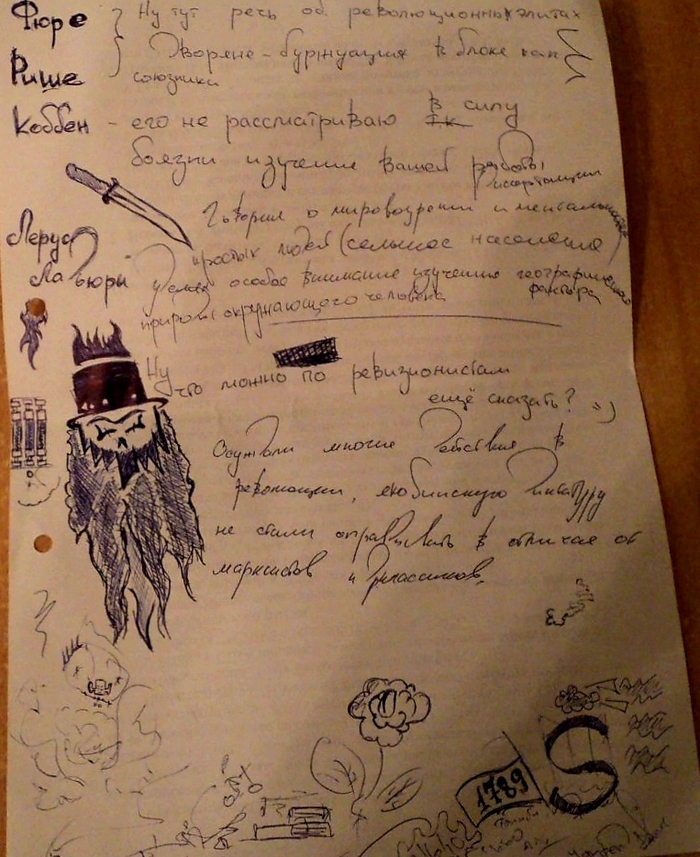 Фюре Ну тут речь об революционных элитах
Дворяне-буржуация в блоке как
Рише союзники
Коббен - его не рассматриваю в силу
т.к.
боязни изучение вашей работы
диссертации
Говорил о мировозрении и менталитете
Леруа простых людей (сельское население)
Ладюри уделял особое внимание изучению географического
фактора
природы окружающего человека
Ну
что можно по ревизионистам
ещё сказать? =)
Осуждали многие действия в
революции, якобинскую диктатуру
не стали оправдывать в отличае от
марксистов и классиков.
1789
S